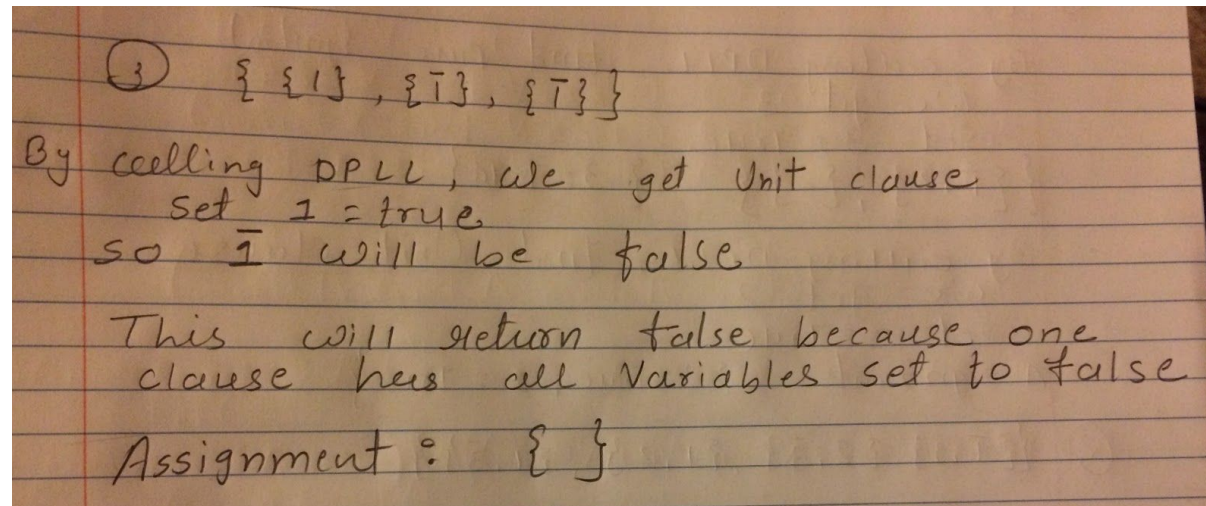 ③ { {1}, {1̅}, {1̅} }
By calling DPLL, we get Unit clause
Set 1 = true
so 1̅ will be false
This will return false because one
clause has all Variables set to false
Assignment : { }